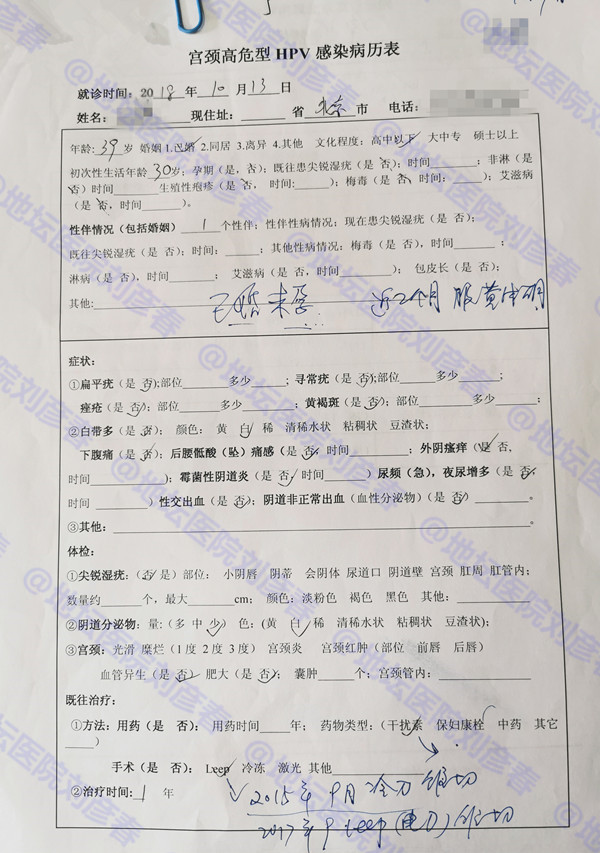 宫颈高危型 HPV 感染病历表
就诊时间：2018 年 10 月 13 日
姓名： 现住址：______ 省 北京 市 电话：
年龄: 39 岁 婚姻 1.已婚 2.同居 3.离异 4.其他 文化程度：高中以下 大中专 硕士以上
初次性生活年龄 30 岁；孕期（是，否）；既往患尖锐湿疣（是 否）；时间______；非淋（是
否）时间______生殖性疱疹（是 否，时间:_____）；梅毒（是 否，时间：_____）；艾滋病
（是 否，时间______）。
性伴情况（包括婚姻） 1 个性伴；性伴性病情况：现在患尖锐湿疣（是 否）；
既往尖锐湿疣（是 否）；时间：_____；其他性病情况：梅毒（是 否），时间______；
淋病（是 否），时间______； 艾滋病（是 否，时间________）； 包皮长（是 否）；
其他: 已婚未孕 近2个月 服黄体酮
症状：
①扁平疣（是 否）;部位______多少_____；寻常疣（是 否）;部位______多少_____；
痤疮（是 否）；部位______多少______；黄褐斑（是 否）；部位______多少______；
②白带多（是 否）； 颜色： 黄 白 稀 清稀水状 粘稠状 豆渣状；
下腹痛（是 否）；后腰骶酸（坠）痛感（是 否，时间________）；外阴瘙痒（是 否，
时间__________）；霉菌性阴道炎（是 否，时间______）尿频（急），夜尿增多（是 否，
时间 ________）性交出血（是 否）；阴道非正常出血（血性分泌物）（是 否） ________。
③其他：______。
体检：
①尖锐湿疣：（否 是）部位： 小阴唇 阴蒂 会阴体 尿道口 阴道壁 宫颈 肛周 肛管内；
数量约______个，最大______cm； 颜色：淡粉色 褐色 黑色 其他：__________
②阴道分泌物：量:（多 中 少） 色：（黄 白 稀 清稀水状 粘稠状 豆渣状）；
③宫颈：光滑 糜烂（1 度 2 度 3 度） 宫颈炎 宫颈红肿（部位 前唇 后唇）
血管异生（是 否） 肥大（是 否）； 囊肿____个； 宫颈管内：__________
既往治疗：
①方法：用药（是 否）： 用药时间____年； 药物类型：（干扰素 保妇康栓 中药 其它
____）
手术（是 否）： Leep 冷冻 激光 其他______
②治疗时间: 1 年
2015年9月 冷刀锥切
2017年9 Leep（电刀）锥切
@地坛医院刘彦春